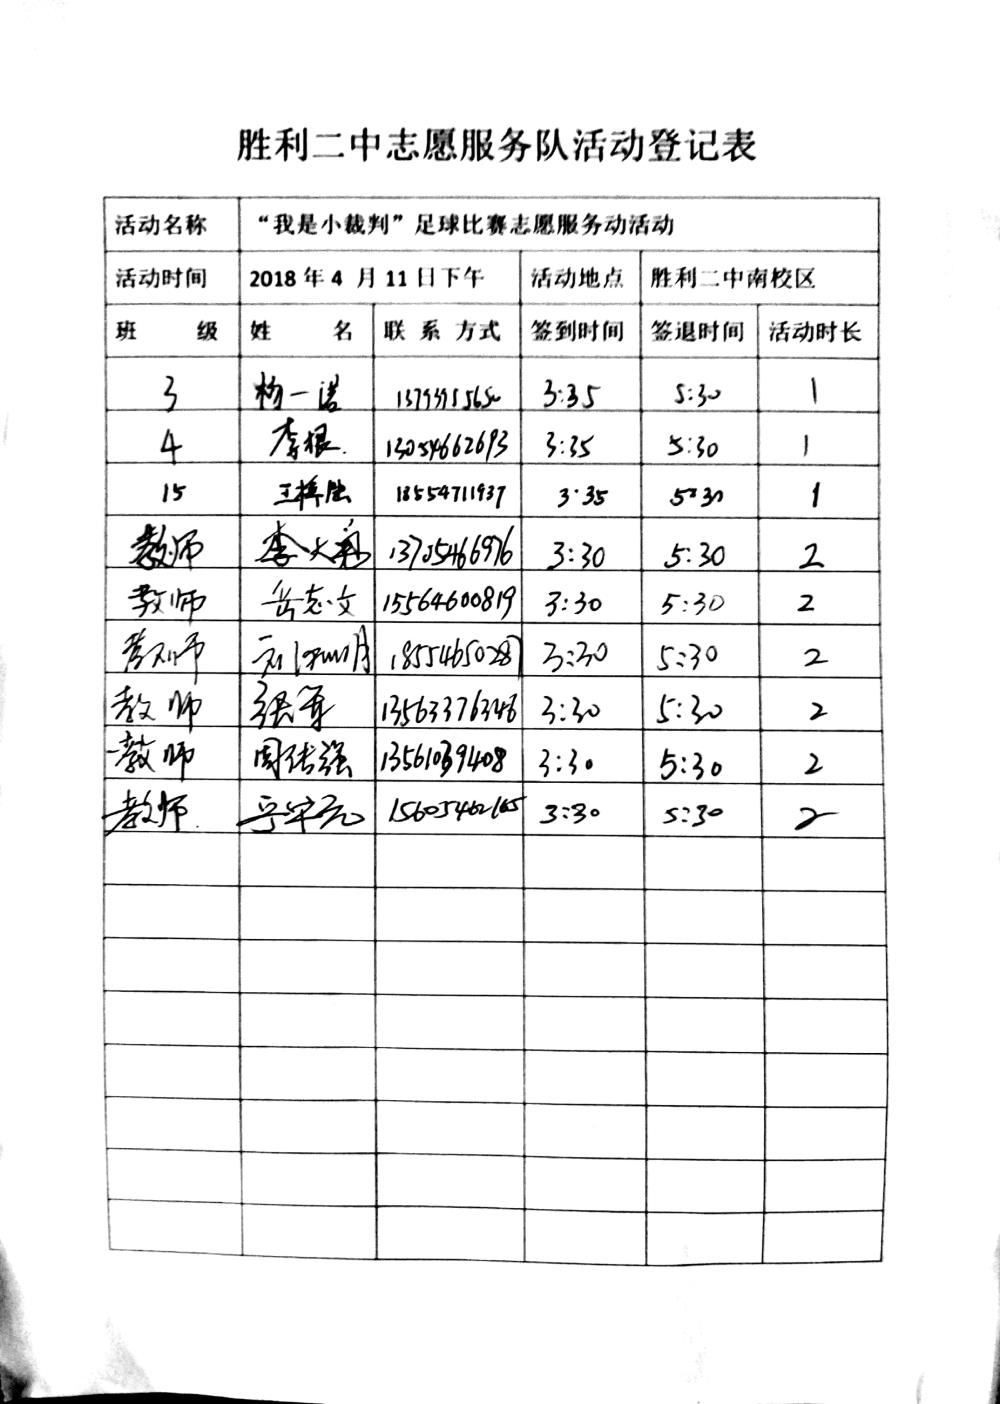 胜利二中志愿服务队活动登记表
活动名称 “我是小裁判”足球比赛志愿服务动活动
活动时间 2018年4 月11日下午 活动地点 胜利二中南校区
班 级 姓 名 联系方式 签到时间 签退时间 活动时长
3 杨一诺 3:35 5:30 1
4 李根. 13054662693 3:35 5:30 1
15 王 18554711937 3:35 5:30 1
教师 李 13705466976 3:30 5:30 2
教师 岳志文 15564600819 3:30 5:30 2
教师 刘 18554650287 3:30 5:30 2
教师 张军 13563376346 3:30 5:30 2
教师 周传强 13561039408 3:30 5:30 2
教师. 15605462165 3:30 5:30 2